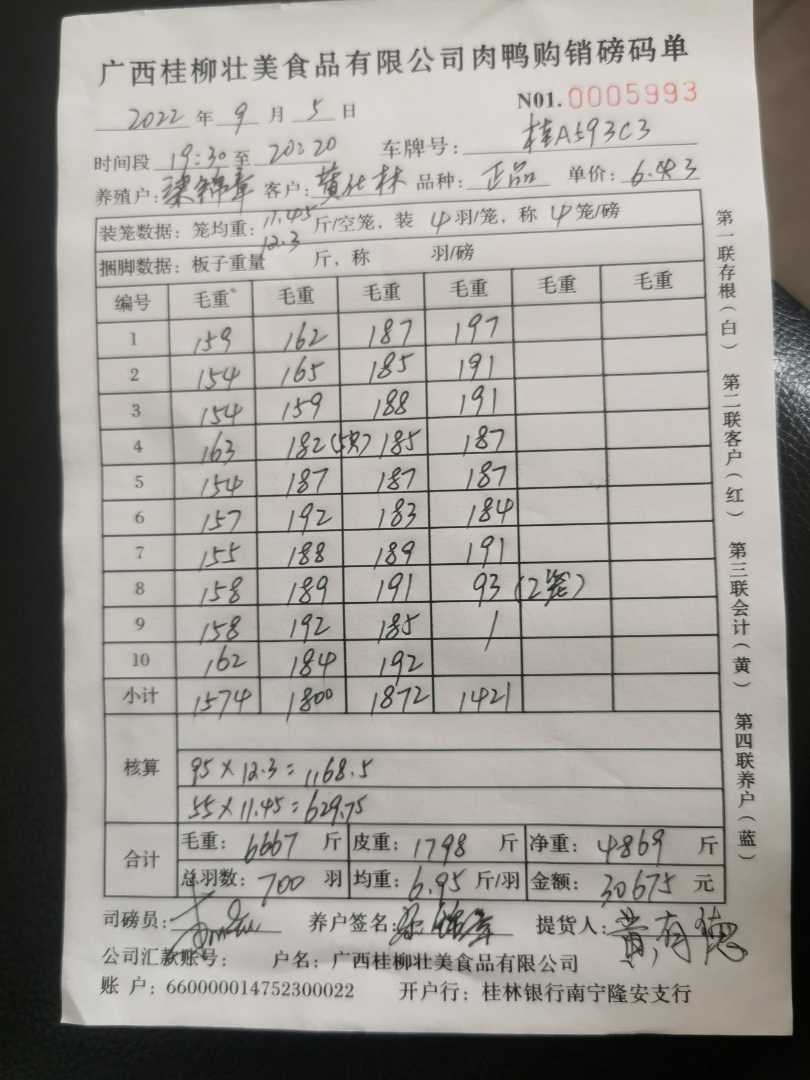 广西桂柳壮美食品有限公司肉鸭购销磅码单
2022 年 9 月 5 日 N01. 0005993
时间段 19:30 至 20:20 车牌号: 桂A593C3
养殖户: 梁锦章 客户: 黄化林 品种: 正品 单价: 6.43
装笼数据: 笼均重: 11.45 斤/空笼, 装 4 羽/笼, 称 4 笼/磅
12.3
捆脚数据: 板子重量 斤, 称 羽/磅
编号 毛重 毛重 毛重 毛重 毛重 毛重
1 159 162 187 197
2 154 165 185 191
3 154 159 188 191
4 163 182 (5只) 185 187
5 154 187 187 187
6 157 192 183 184
7 155 188 189 191
8 158 189 191 93 (2笼)
9 158 192 185 /
10 162 184 192
小计 1574 1800 1872 1421
核算
95 × 12.3 = 1168.5
55 × 11.45 = 629.75
合计
毛重: 6667 斤 皮重: 1798 斤 净重: 4869 斤
总羽数: 700 羽 均重: 6.95 斤/羽 金额: 30675 元
司磅员: 养户签名: 梁锦章 提货人: 黄有德
公司汇款账号: 户名: 广西桂柳壮美食品有限公司
账 户: 660000014752300022 开户行: 桂林银行南宁隆安支行
第一联存根(白) 第二联客户(红) 第三联会计(黄) 第四联养户(蓝)